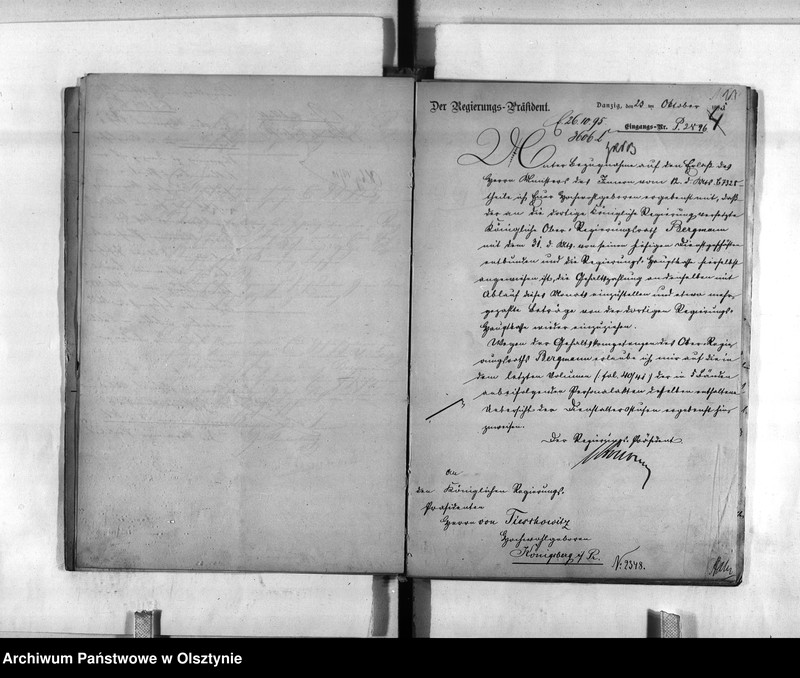 Der Regierungs-Präsident.
Danzig, den 23 ten Oktober 1895
4
E 26.10.95
3606 L
Eingangs-Nr. P. 2596
Unter Bezugnahme auf den Erlaß des
Herrn Ministers des Innern vom d. Mts.
theile ich Euer Hochwohlgeboren ergebenst mit, daß
der an die dortige Königliche Regierung versetzte
Königliche Ober-Regierungsrath Bergmann
mit dem 31. d. Mts. von seinen hiesigen Dienstgeschäften
entbunden und die Regierungs-Hauptkasse hierselbst
angewiesen ist, die Gehaltszahlung an denselben mit
Ablauf dieses Monats einzustellen und etwa mehr
gezahlte Beträge von der dortigen Regierungs-
Hauptkasse wieder einzuziehen.
Wegen der Gehaltskompetenzen des Ober-Regie-
rungsraths Bergmann erlaube ich mir auf die in
dem letzten Volumen (fol. 40/41) der in Bänden
anbeifolgenden Personalakten desselben enthaltene
Uebersicht der Dienstaltersstufen ergebenst hin-
zuweisen.
Der Regierungs-Präsident
An
den Königlichen Regierungs-
Präsidenten
Herrn von Tieschowitz
Hochwohlgeboren
Königsberg i/Pr.
No. 2348.
Archiwum Państwowe w Olsztynie